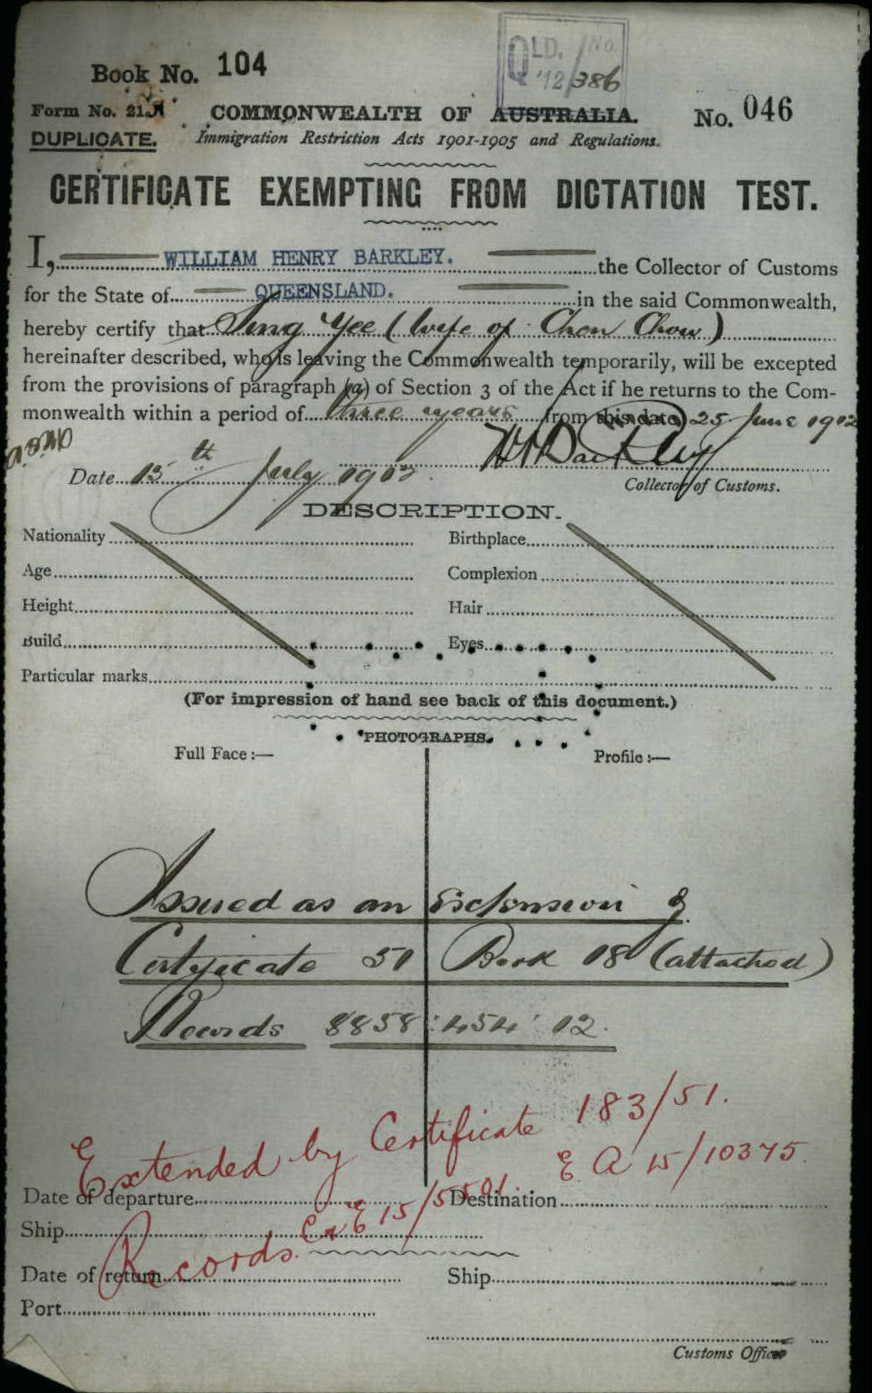 QLD. No.
'12/386
Book No. 104
Form No. 21A
COMMONWEALTH OF AUSTRALIA.
No. 046
DUPLICATE.
Immigration Restriction Acts 1901-1905 and Regulations.
CERTIFICATE EXEMPTING FROM DICTATION TEST.
I, WILLIAM HENRY BARKLEY. the Collector of Customs
for the State of QUEENSLAND. in the said Commonwealth,
hereby certify that Sing Yee (wife of Chon Chow)
hereinafter described, who is leaving the Commonwealth temporarily, will be excepted
from the provisions of paragraph (a) of Section 3 of the Act if he returns to the Com-
monwealth within a period of three years from this date 25 June 1912
Date 15th July 1912.
Collector of Customs.
DESCRIPTION.
Nationality Birthplace
Age Complexion
Height Hair
Build Eyes
Particular marks
(For impression of hand see back of this document.)
PHOTOGRAPHS.
Full Face :— Profile :—
Issued as an Extension of
Certificate 51 Book 18 (attached)
Records 8858:454:12.
Extended by Certificate 183/51.
E A 15/10375.
Date of departure Destination
Ship
Records 15/5501.
Date of return Ship
Port
Customs Officer